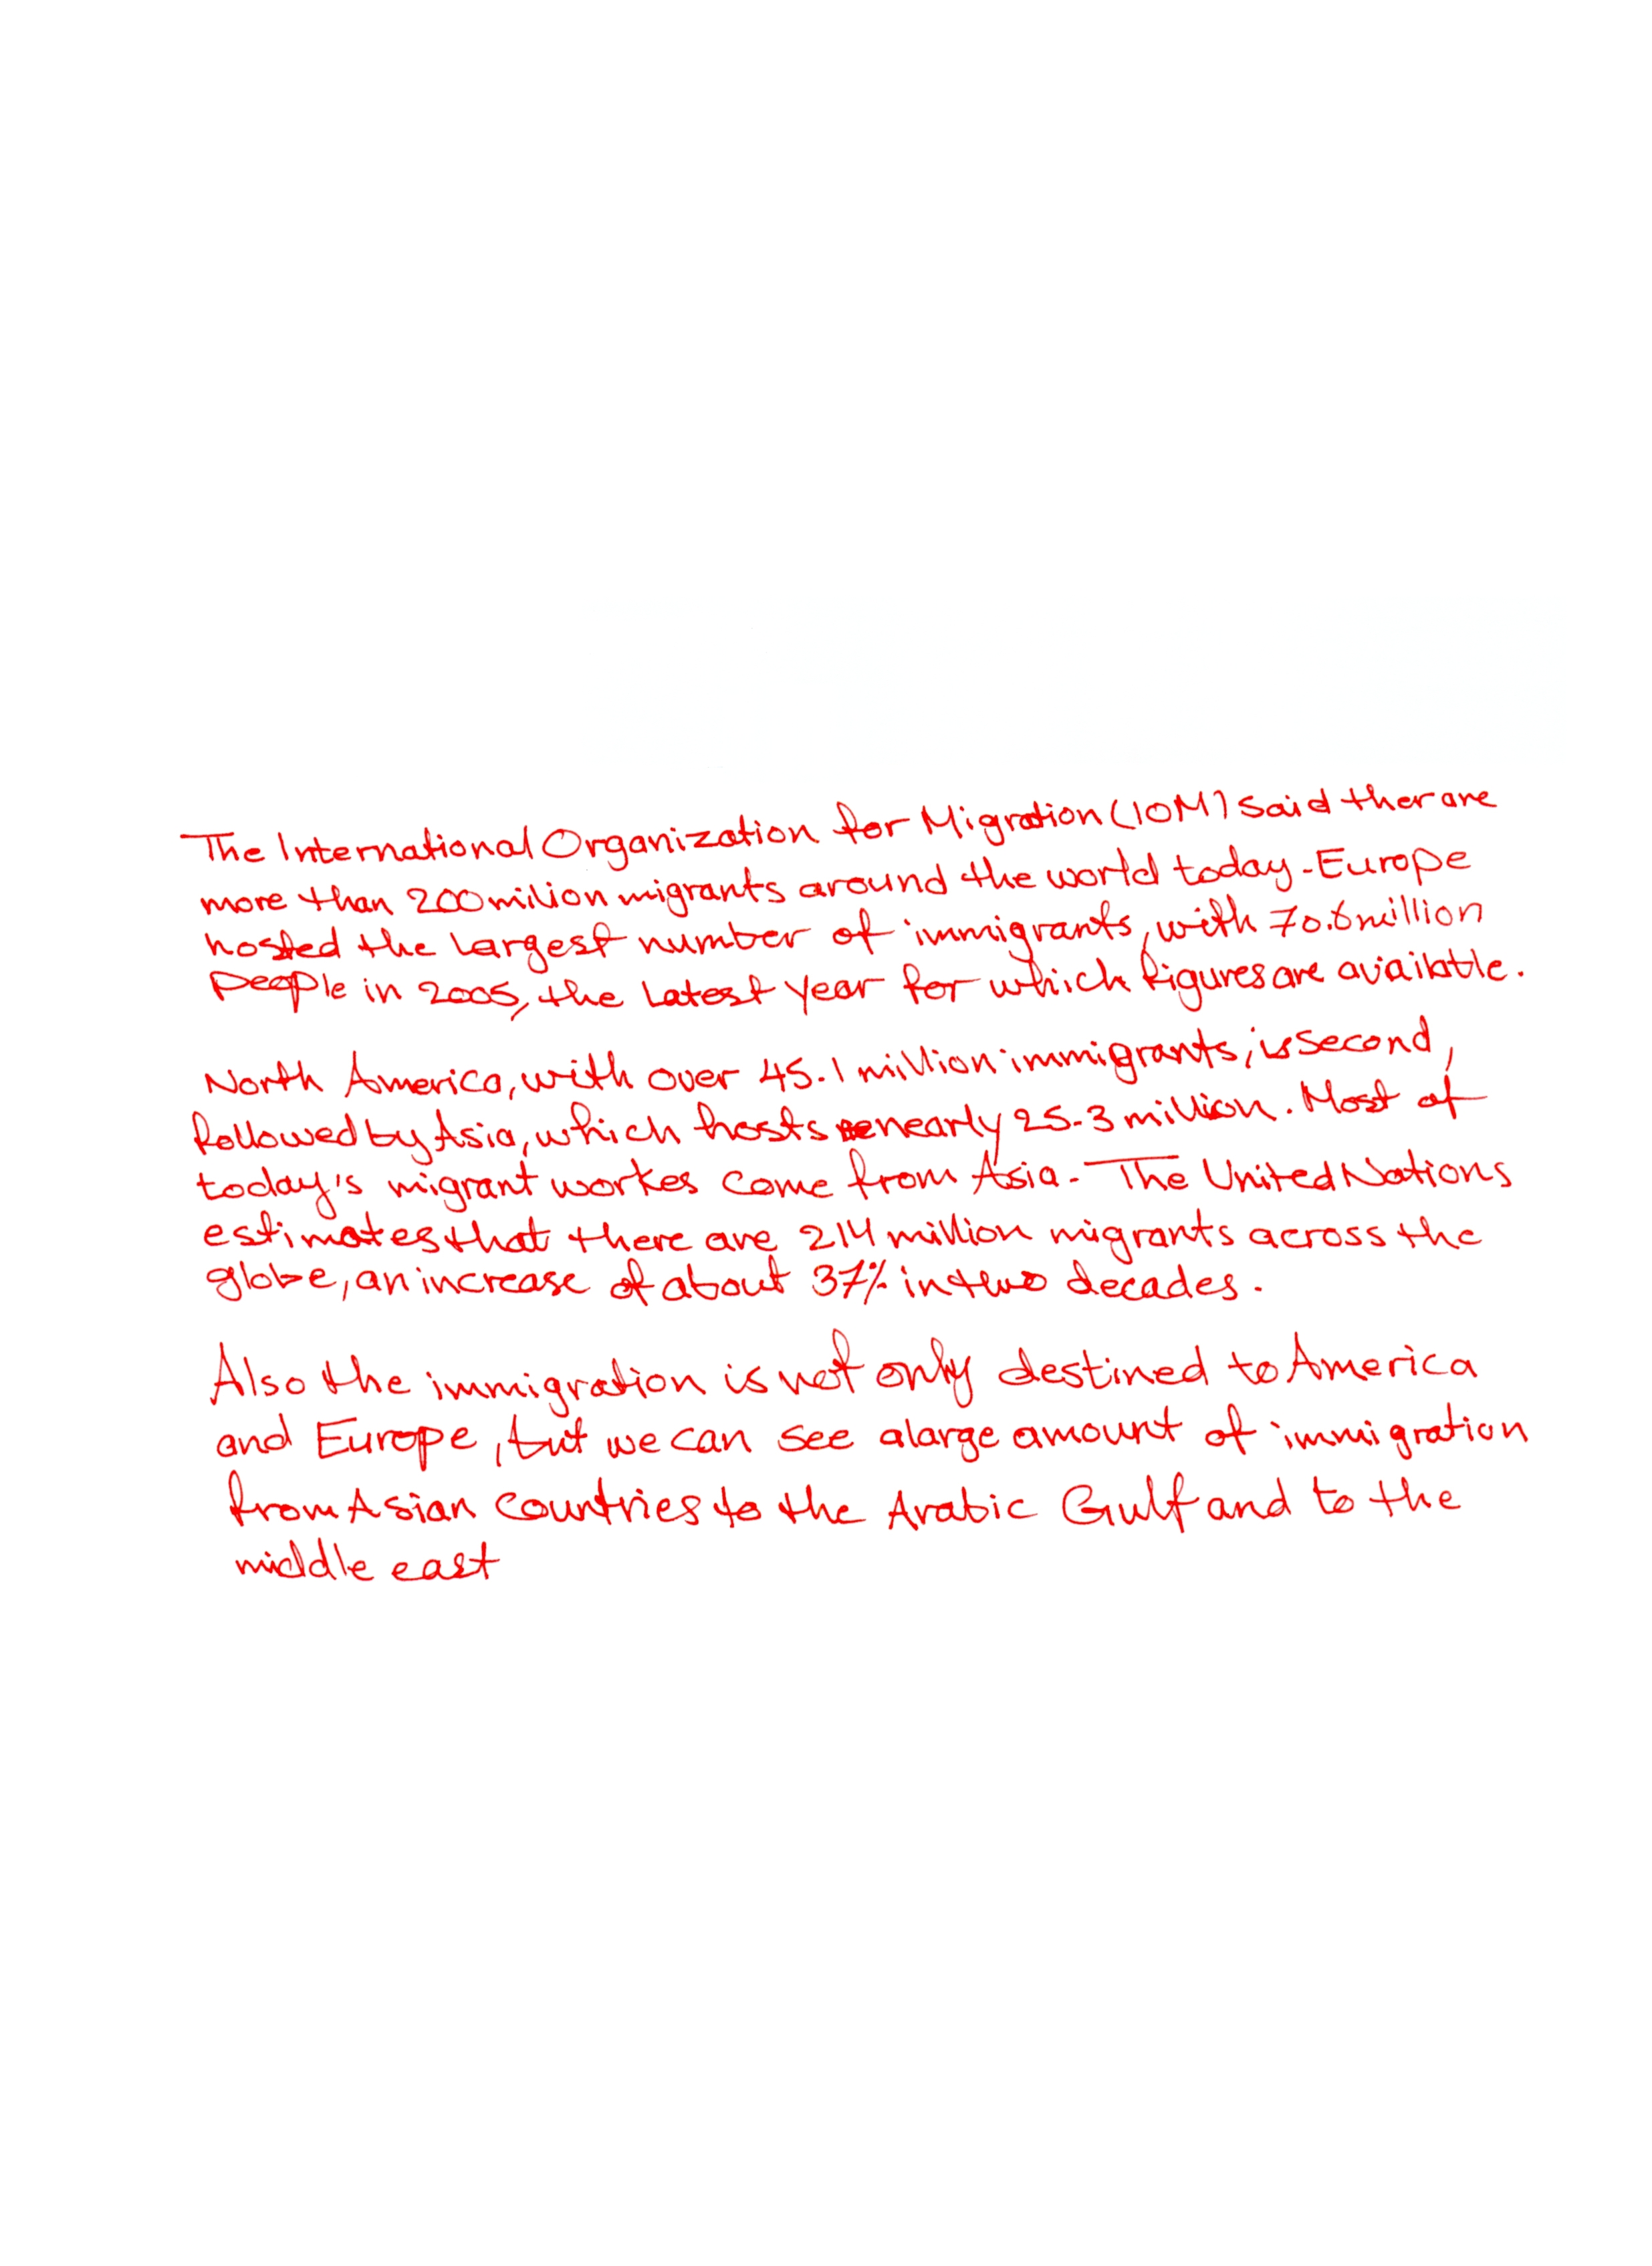 The International Organization for Migration (IOM) said ther are
more than 200 milion migrants around the world today. Europe
hosted the largest number of immigrants, with 70.6 million
people in 2005, the latest year for which figures are available.
North America, with over 45.1 million immigrants, is second,
followed by Asia, which hosts nearly 25.3 million. Most of
today's migrant workes come from Asia. The United Nations
estimates that there are 214 million migrants across the
globe, an increase of about 37% in two decades.
Also the immigration is not only destined to America
and Europe, but we can see a large amount of immigration
from Asian countries to the Arabic Gulf and to the
middle east